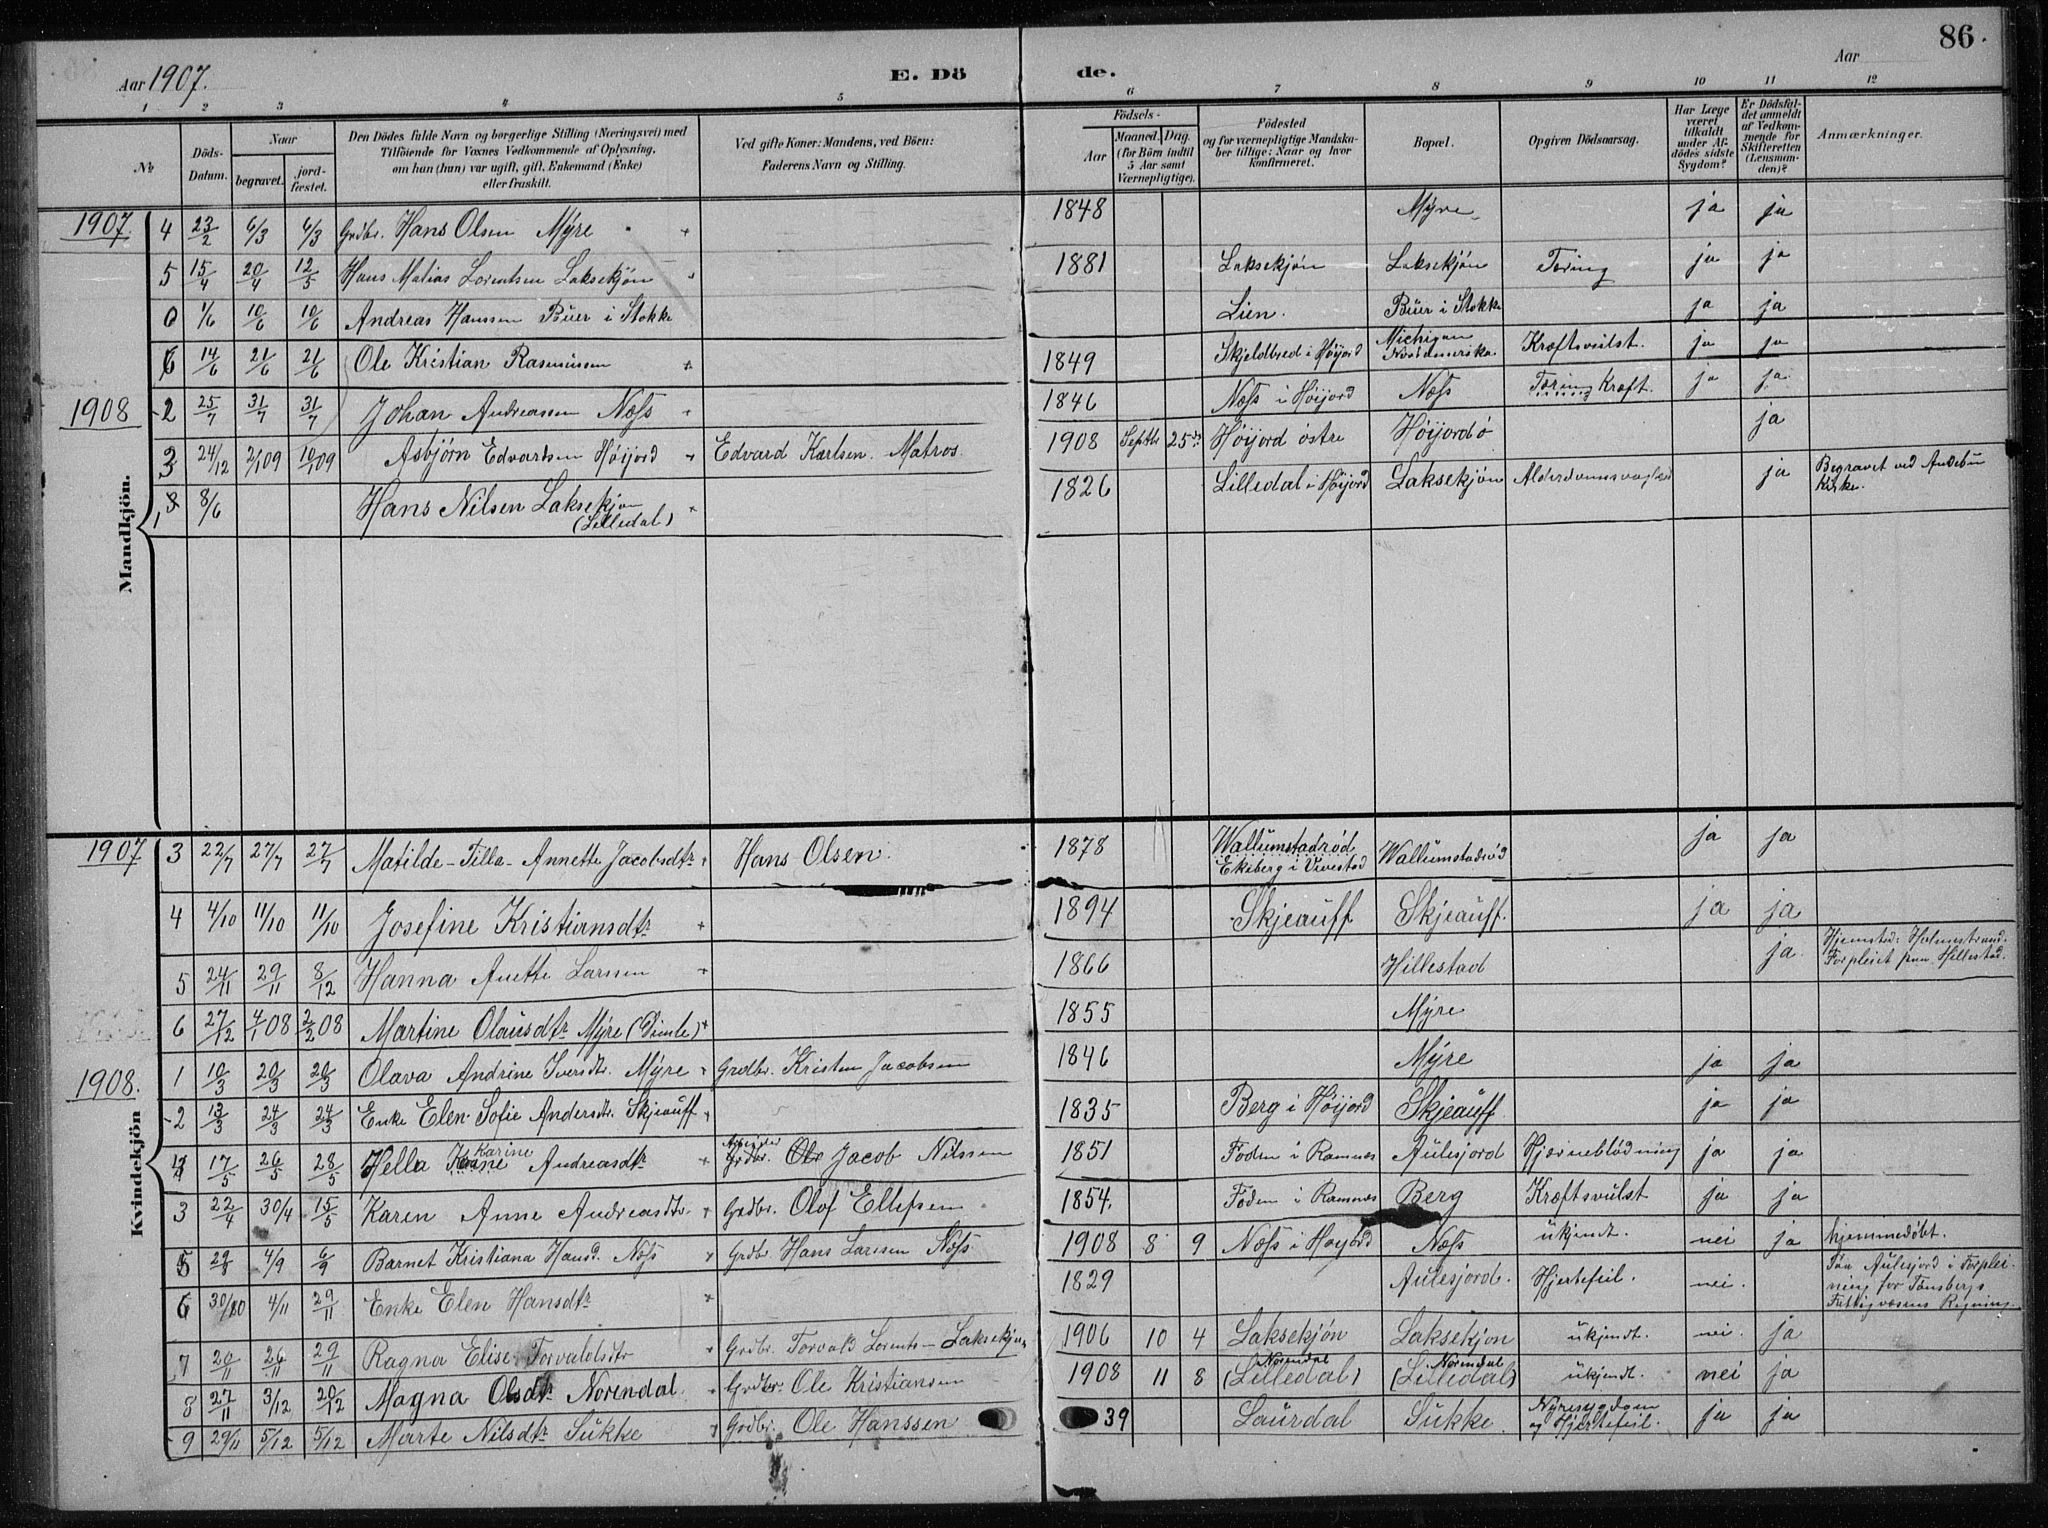 86.
Aar 1907.
E. Dö de.
Aar
1 2 3 4 5 6 7 8 9 10 11 12
№
Döds-Datum.
Naar
begravet.
jord-fæstet.
Den Dödes fulde Navn og borgerlige Stilling (Næringsvei) med
Tilföiende for Voxnes Vedkommende af Oplysning,
om han (hun) var ugift, gift, Enkemand (Enke)
eller fraskilt.
Ved gifte Koner: Mandens, ved Börn:
Faderens Navn og Stilling.
Födsels-
Aar
Maaned. Dag.
(for Börn indtil
5 Aar samt
Værnepligtige).
Födested
og for værnepligtige Mandska-
ber tillige: Naar og hvor
konfirmeret.
Bopæl.
Opgiven Dödsaarsag.
Har Læge
været
tilkaldt
under Af-
dödes sidste
Sygdom?
Er Dödsfal-
det anmeldt
af Vedkom-
mende for
Skifteretten
(Lensman-
den)?
Anmærkninger.
Mandkjön.
1907. 4 23/2 6/3 6/3 Grdbr. Hans Olsen Myre 1848 Myre ja ja
5 15/4 20/4 12/5 Hans Matias Lorentsen Laksekjøn 1881 Laksekjøn Laksekjøn Tæring ja ja
6 1/6 10/6 10/6 Andreas Hanssen Buer i Stokke Lien. Buer i Stokke ja ja
6 14/6 21/6 21/6 Ole Kristian Rasmussen 1849 Skjeldbred i Høijord Michigan Nordamerika Kræftsvulst. ja ja
1908 2 25/7 31/7 31/7 Johan Andreassen Næss 1846 Næss i Høijord Næss Tæring Kræft. ja ja
3 24/12 2/1 09 10/1 09 Asbjørn Edvartsen Høijord Edvard Karlsen. Matros. 1908 Septbr 25de Høijord østre Høijord ø ja
1 8/6 Hans Nilsen Laksekjøn (Lilledal) 1826 Lilledal i Høijord Laksekjøn ja Begravet ved Andebu Kirke.
Kvindekjön
1907 3 22/7 27/7 27/7 Matilde-Tilla-Annette Jacobsdtr Hans Olsen. 1878 Wallumstadrød Ekeberg i Vivestad Wallumstadrød ja ja
4 4/10 11/10 11/10 Josefine Kristiansdtr 1894 Skjeauff Skjeauff. ja ja
5 24/11 29/11 8/12 Hanna Anette Larsen 1866 Hillestad ja. Hjemsted: Holmestrand. Forpleiet paa Hillestad.
6 27/12 4/1 08 2/2 08 Martine Olausdtr Myre (Dimle) 1855 Myre
1908. 1 10/3 20/3 20/3 Olava Andrine Iversdtr. Myre Grdbr. Kristen Jacobsen 1846 Myre ja ja
2 13/3 24/3 24/3 Enke Elen Sofie Andersdtr. Skjeauff 1835 Berg i Høijord Skjeauff ja ja
4 17/5 26/5 28/5 Hella Karine Andreasdtr Arbeider Jacob Nilssen 1851 Foden i Ramnes Aulesjord Hjerneblødning ja ja
3 22/4 30/4 15/5 Karen Anne Andreasdtr. Grdbr. Olof Ellefsen 1854. Foden i Ramnes Berg Kræftsvulst ja ja
5 29/8 4/9 6/9 Barnet Kristiana Hansd. Næss Grdbr. Hans Larssen Næss 1908 8 9 Næss i Høyord Næss ukjendt. nei ja hjemmedøbt.
6 30/10 4/11 29/11 Enke Elen Hansdtr 1829 Aulesjord. Hjertefeil. nei. Fra Aulesjord i Forpleining for Tønsbergs Fattigvæsens Regning.
7 20/11 26/11 29/11 Ragna Elise Torvaldsdtr Grdbr. Torvald Lorents- Laksekjøn 1906 10 4 Laksekjøn Laksekjøn ukjendt. nei. ja
8 27/11 3/12 20/12 Magna Olsdtr. Norendal. Grdbr. Ole Kristiansen 1908 11 8 Norendal (Lilledal) Norendal (Lilledal) ukjendt. nei ja
9 29/11 5/12 5/12 Marte Nilsdtr Sukke Grdbr. Ole Hanssen 39 Laurdal Sukke Nyresygdom og Hjertefeil. ja ja